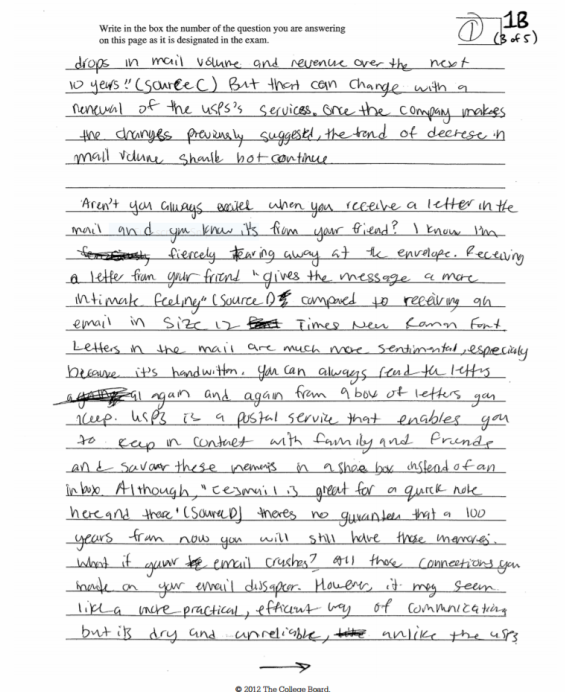 Write in the box the number of the question you are answering
on this page as it is designated in the exam.
1
1B
(3 of 5)
drops in mail volume and revenue over the next
10 years" (Source C) But that can change with a
renewal of the USPS's services. Once the company makes
the changes previously suggested, the trend of decrese in
mail volume should not continue
Aren't you always excited when you receive a letter in the
mail and you know it's from your friend? I know I'm
fiercely tearing away at the envelope. Receiving
a letter from your friend "gives the message a more
intimate feeling" (Source D) compared to receiving an
email in Size 12 Times New Roman Font.
Letters in the mail are much more sentimental, especially
because it's handwritten. You can always read the letters
again and again from a box of letters you
keep. USPS is a postal service that enables you
to keep in contact with family and friends
and savor these memories in a shoe box instead of an
inbox. Although, "email is great for a quick note
here and there" (Source D) theres no guarantee that a 100
years from now you will still have those memories.
What if your email crashes? All those connections you
made on your email dissapear. However, it may seem
like a more practical, efficient way of communicating
but it's dry and unreliable, unlike the USPS
© 2012 The College Board.